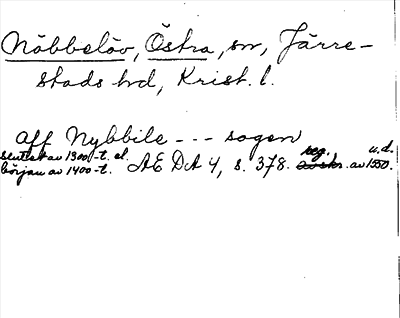 Näbbelöv, Östra, sn, Järre-
stads hd, Krist. l.
aff Nybbile --- sogen
slutet av 1300-t. el. början av 1400-t. AEDA 4, s. 378. reg. av 1550. u.d.